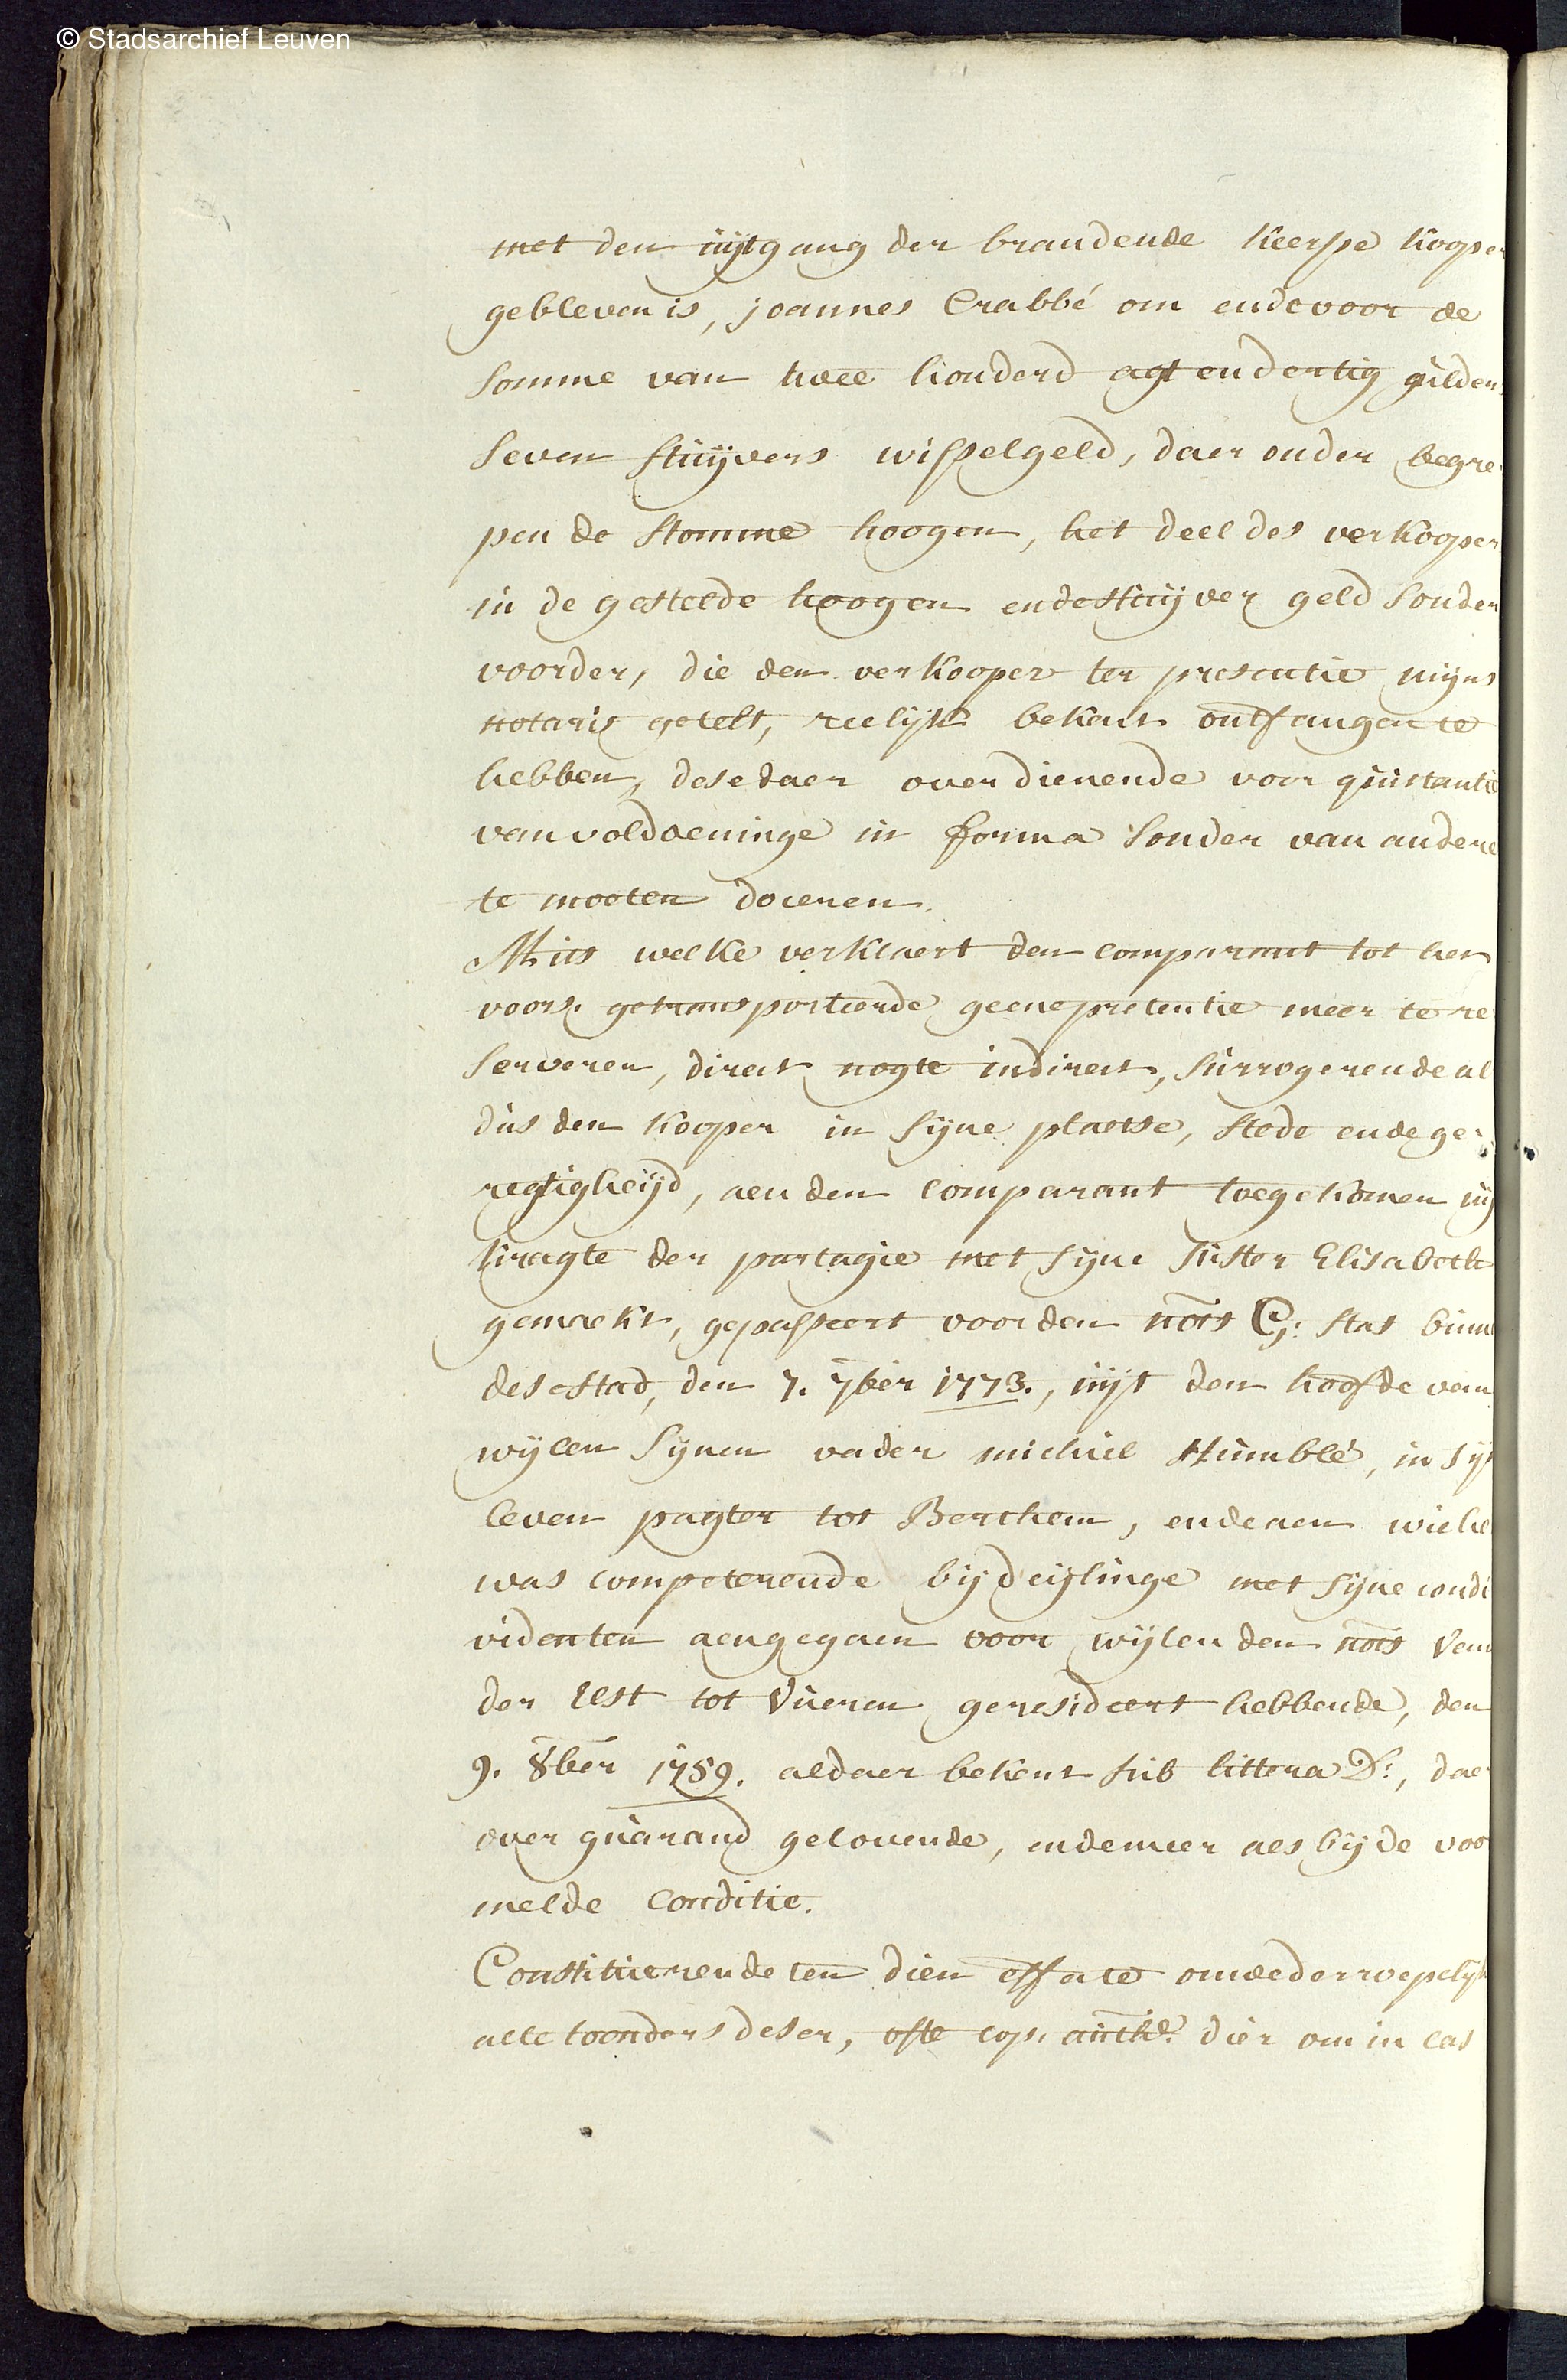 © Stadsarchief Leuven
met den uijtgang der brandende keersse kooper
gebleven is, joannes Crabbé om ende voor de
somme van twee honderd agt endertig guldens
seven stuijvers wisselgeld, daer onder begre-
pen de stomme hoogen, het deel des verkooper
in de gestelde hoogen ende stuijver geld sonder
voorder, die den verkooper ter presentie mijns
notaris getelt, reelijk bekent ontfangen te
hebben, dese daer over dienende voor quittantie
van voldoeninge in forma sonder van andere
te moeten doceren.
Mits welke verklaert den comparant tot het
voors. getransporteerde geene pretentie meer te re
serveren, direct nogte indirect, surrogerende al
dus den kooper in sijne plaetse, stede ende ge-
regtigheijd, aen den comparant toegekomen uij
kragte der partagie met sijne suster Elisabeth
gemaekt, gepasseert voor den nots G: Stas binne
dese stad, den 7. 7ber 1773., uijt den hoofde van
wijlen sijnen vader michiel Humblé, in sij
leven pagter tot Berthem, ende aen wiehe
was competerende bij deijlinge met sijne condi
videnten aengegaen voor wijlen den nots Van
der Elst tot Vueren geresideert hebbende, den
9. 8ber 1759. aldaer bekent sub littera D:, daer
over guarand gelovende, ende meer als bij de voor
melde conditie.
Constituerende ten dien effecte onwederroepelijk
alle toonders deser, ofte cop. auth: dier om in cas